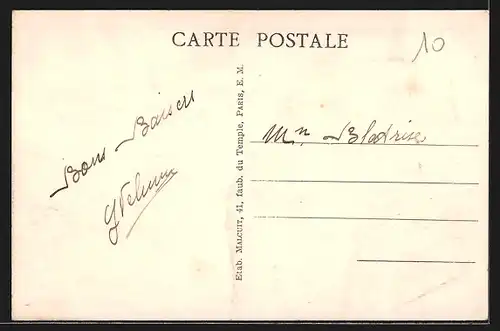 CARTE POSTALE
10
Bons Baisers
Etab. MALCUIT, 41, faub. du Temple, PARIS, E. M.